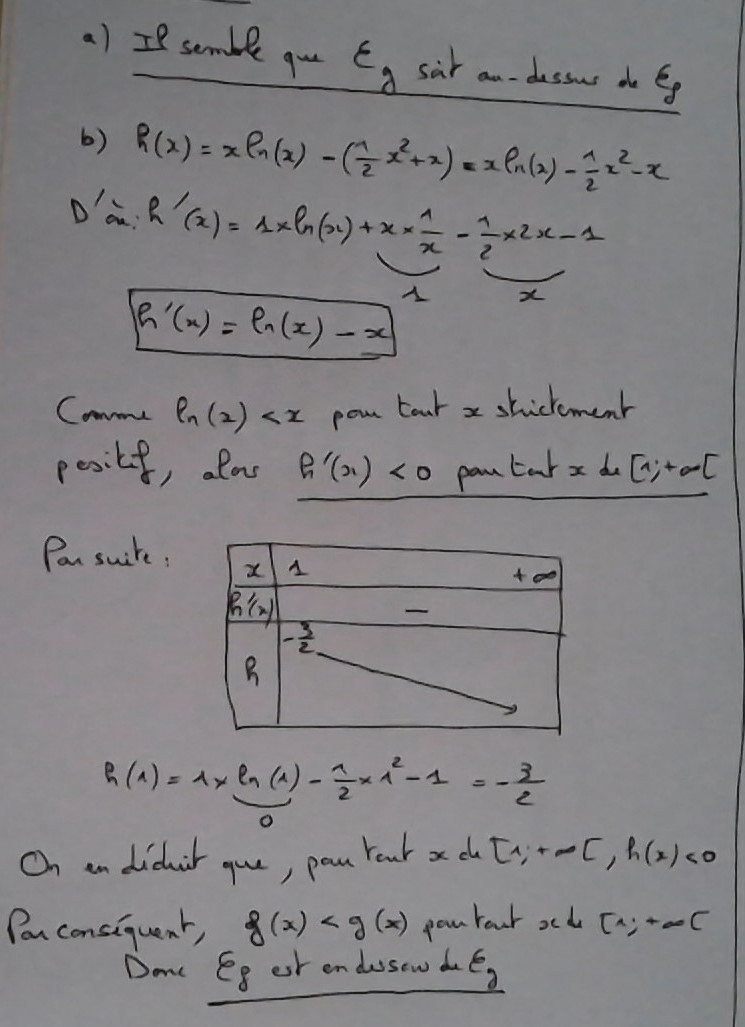 a) Il semble que Cg soit au-dessus de Cf
b) h(x) = x ln(x) - (1/2 x² + x) = x ln(x) - 1/2 x² - x
D'où : h'(x) = 1 × ln(x) + x × 1/x - 1/2 × 2x - 1
1 x
h'(x) = ln(x) - x
Comme ln(x) < x pour tout x strictement
positif, alors h'(x) < 0 pour tout x de [1; +∞[
Par suite :
x 1 +∞
h'(x) -
-3/2
h
h(1) = 1 × ln(1) - 1/2 × 1² - 1 = -3/2
0
On en déduit que, pour tout x de [1; +∞[, h(x) < 0
Par conséquent, f(x) < g(x) pour tout x de [1; +∞[
Donc Cf est en dessous de Cg